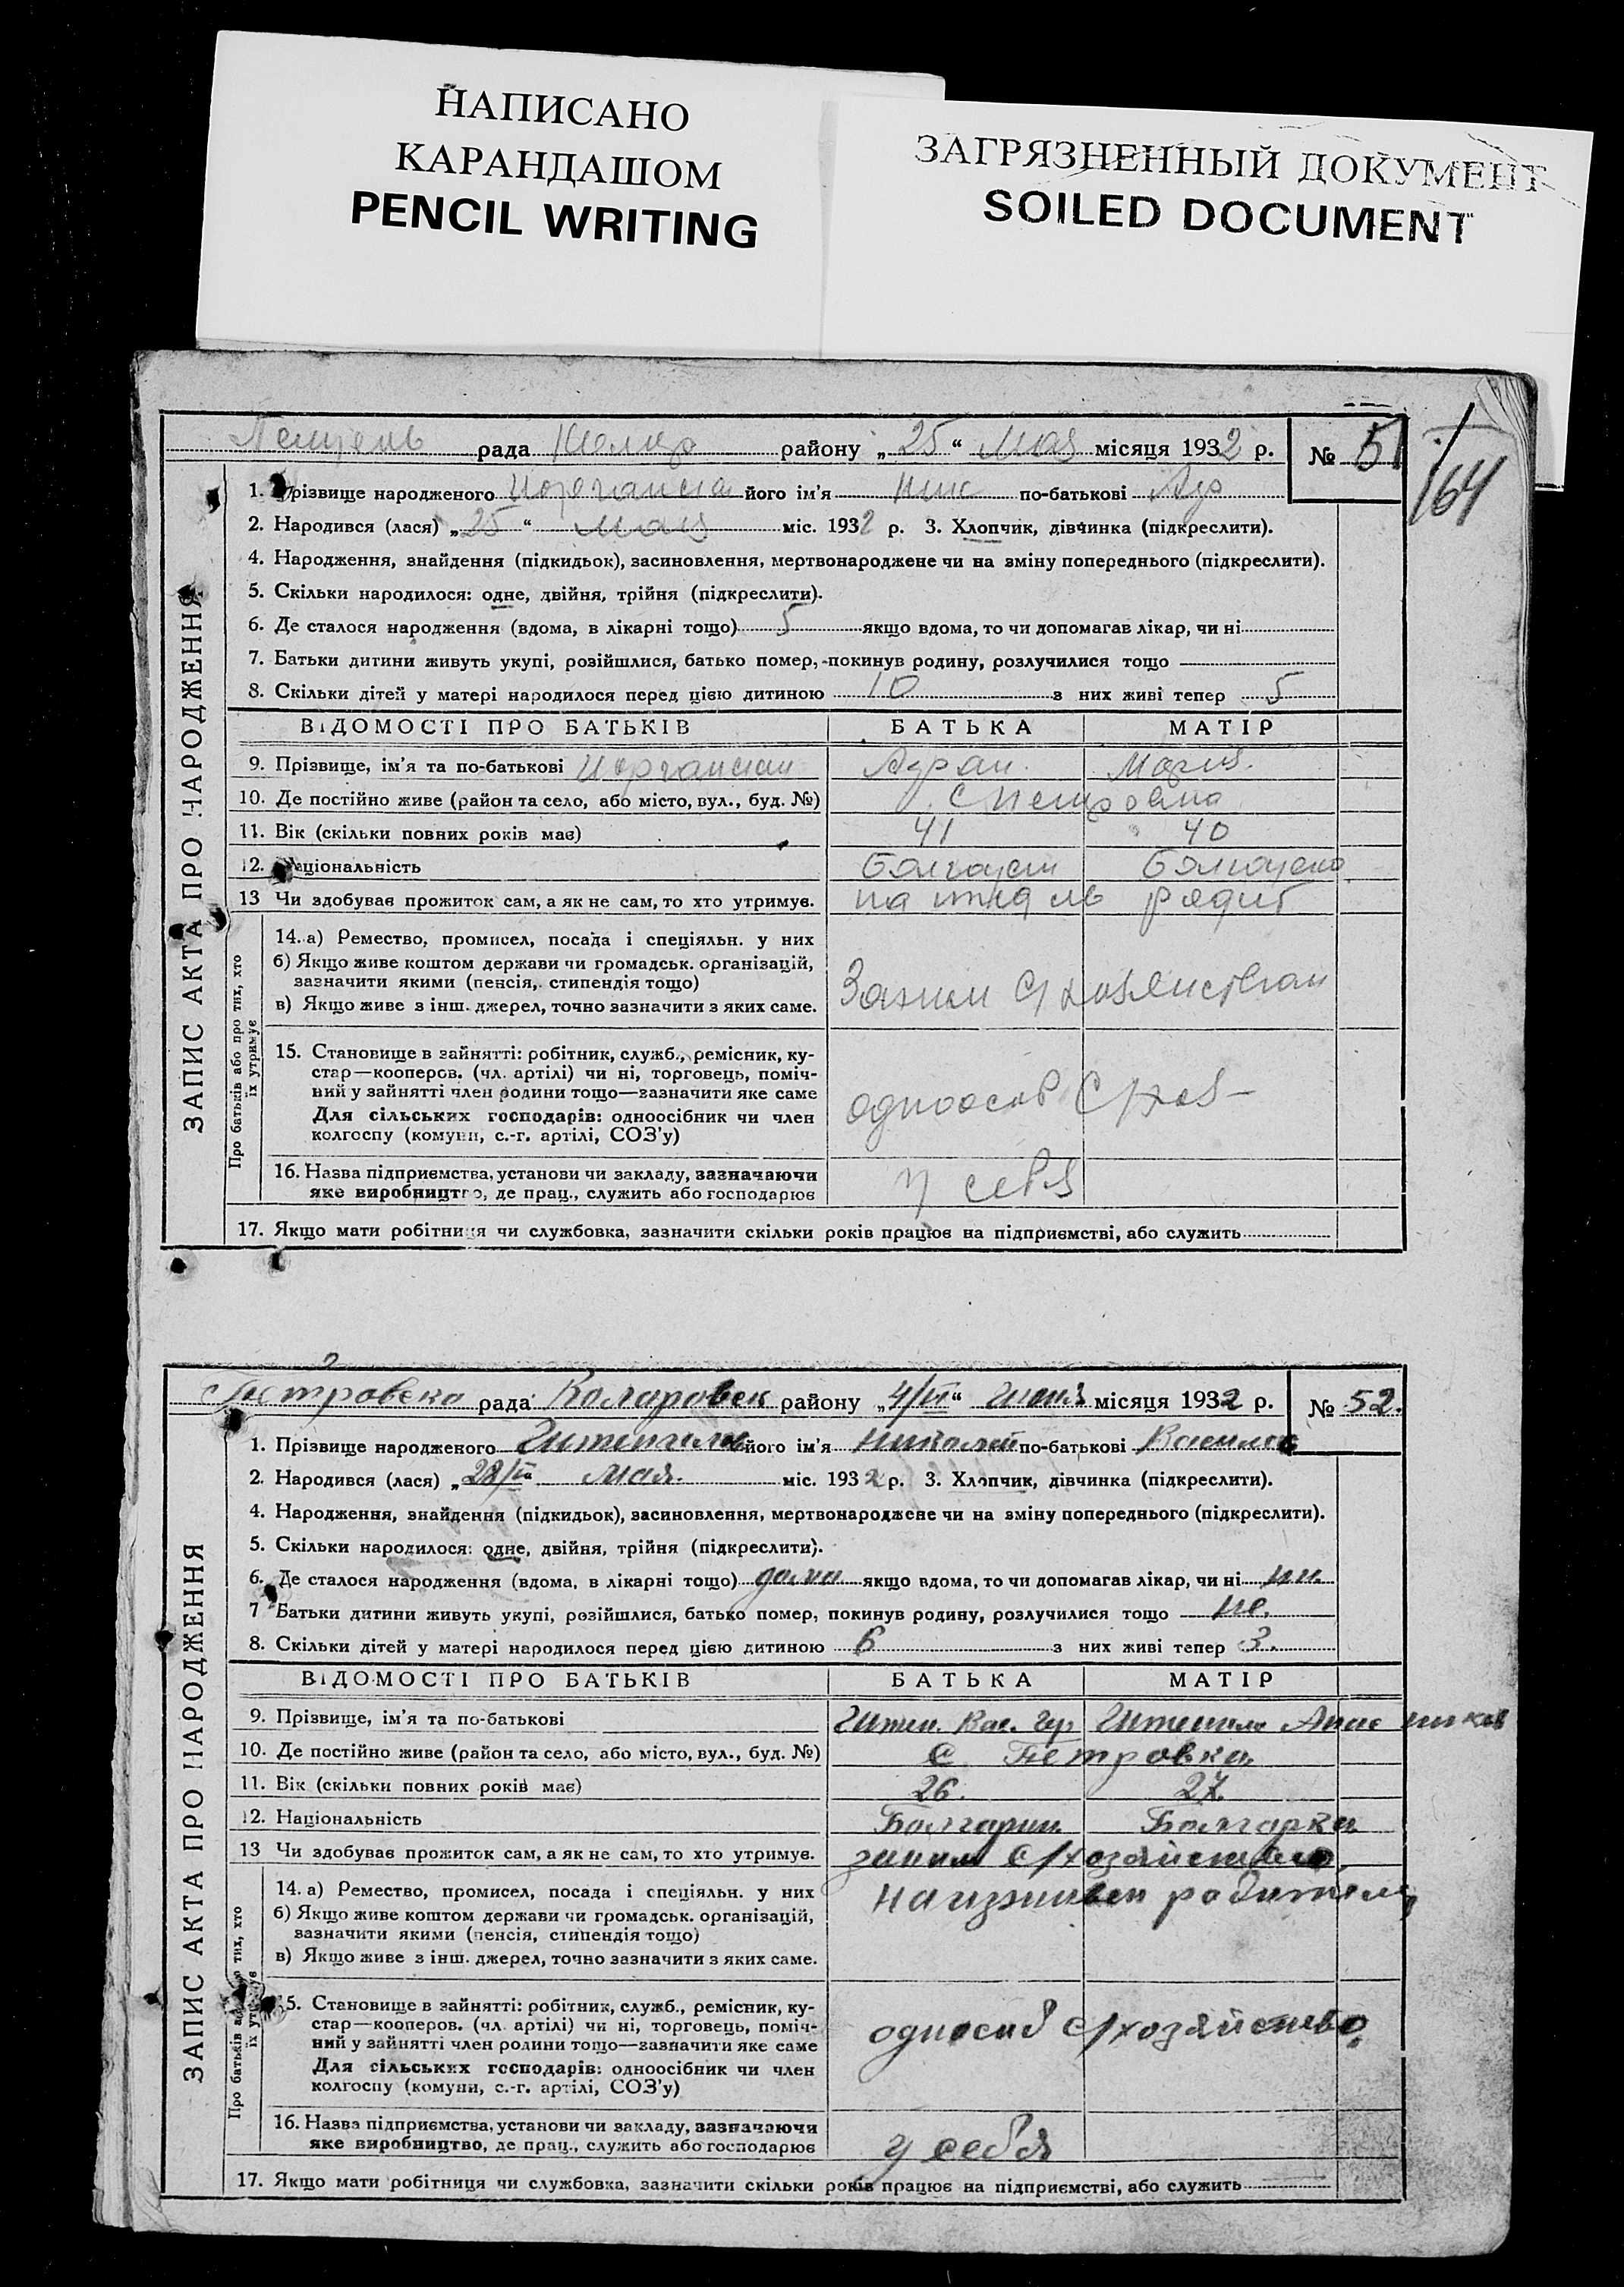 НАПИСАНО
КАРАНДАШОМ
PENCIL WRITING
ЗАГРЯЗНЕННЫЙ ДОКУМЕНТ
SOILED DOCUMENT
рада району „25“ Мая місяця 1932 р. № 51
164
1. Прізвище народженого його ім'я по-батькові
2. Народився (лася) „25“ Мая міс. 1932 р. 3. Хлопчик, дівчинка (підкреслити).
4. Народження, знайдення (підкидьок), засиновлення, мертвонароджене чи на зміну попереднього (підкреслити).
5. Скільки народилося: одне, двійня, трійня (підкреслити).
6. Де сталося народження (вдома, в лікарні тощо) 5 якщо вдома, то чи допомагав лікар, чи ні
7. Батьки дитини живуть укупі, розійшлися, батько помер, покинув родину, розлучилися тощо
8. Скільки дітей у матері народилося перед цією дитиною 10 з них живі тепер 5
ВІДОМОСТІ ПРО БАТЬКІВ БАТЬКА МАТІР
9. Прізвище, ім'я та по-батькові Мария.
10. Де постійно живе (район та село, або місто, вул., буд. №)
11. Вік (скільки повних років має) 41 40
12. Національність
13 Чи здобував прожиток сам, а як не сам, то хто утримує.
14. а) Ремество, промисел, посада і спеціяльн. у них
б) Якщо живе коштом держави чи громадськ. організацій,
зазначити якими (пенсія, стипендія тощо)
в) Якщо живе з інш. джерел, точно зазначити з яких саме.
15. Становище в зайнятті: робітник, служб., ремісник, ку-
стар—кооперов. (чл. артілі) чи ні, торговець, поміч-
ний у зайнятті член родини тощо—зазначити яке саме
Для сільських господарів: одноосібник чи член
колгоспу (комуни, с.-г. артілі, СОЗ'у)
16. Назва підприємства, установи чи закладу, зазначаючи
яке виробництво, де прац., служить або господарює
у себя
17. Якщо мати робітниця чи службовка, зазначити скільки років працює на підприємстві, або служить
ЗАПИС АКТА ПРО НАРОДЖЕННЯ
Про батьків або про тих, хто
їх утримує
Петровска рада Коларовск району „4/VI“ Июня місяця 1932 р. № 52.
1. Прізвище народженого його ім'я Николай по-батькові
2. Народився (лася) „28/ мая. міс. 1932 р. 3. Хлопчик, дівчинка (підкреслити).
4. Народження, знайдення (підкидьок), засиновлення, мертвонароджене чи на зміну попереднього (підкреслити).
5. Скільки народилося: одне, двійня, трійня (підкреслити).
6. Де сталося народження (вдома, в лікарні тощо) дома якщо вдома, то чи допомагав лікар, чи ні ни.
7 Батьки дитини живуть укупі, розійшлися, батько помер, покинув родину, розлучилися тощо не.
8. Скільки дітей у матері народилося перед цією дитиною 6 з них живі тепер 3.
ВІДОМОСТІ ПРО БАТЬКІВ БАТЬКА МАТІР
9. Прізвище, ім'я та по-батькові
10. Де постійно живе (район та село, або місто, вул., буд. №) с Петровка
11. Вік (скільки повних років має) 26. 27.
12. Національність Болгарин Болгарка
13 Чи здобував прожиток сам, а як не сам, то хто утримує. с/хозяйством
14. а) Ремество, промисел, посада і спеціяльн. у них
б) Якщо живе коштом держави чи громадськ. організацій,
зазначити якими (пенсія, стипендія тощо)
в) Якщо живе з інш. джерел, точно зазначити з яких саме.
15. Становище в зайнятті: робітник, служб., ремісник, ку-
стар—кооперов. (чл. артілі) чи ні, торговець, поміч-
ний у зайнятті член родини тощо—зазначити яке саме
Для сільських господарів: одноосібник чи член
колгоспу (комуни, с.-г. артілі, СОЗ'у)
с/хозяйство
16. Назва підприємства, установи чи закладу, зазначаючи
яке виробництво, де прац., служить або господарює
у себя
17. Якщо мати робітниця чи службовка, зазначити скільки років працює на підприємстві, або служить
ЗАПИС АКТА ПРО НАРОДЖЕННЯ